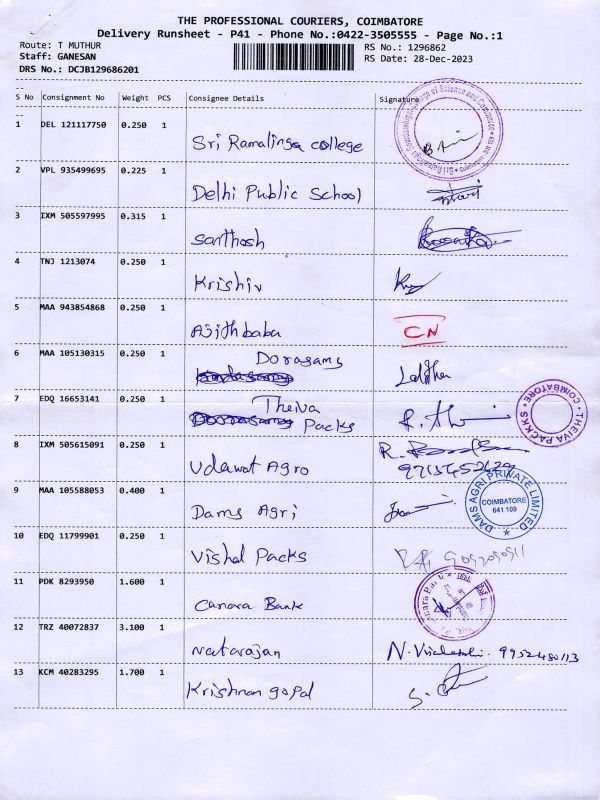 THE PROFESSIONAL COURIERS, COIMBATORE
Delivery Runsheet - P41 - Phone No.:0422-3505555 - Page No.:1
Route: T MUTHUR RS No.: 1296862
Staff: GANESAN RS Date: 28-Dec-2023
DRS No.: DCJB129686201
--
S No Consignment No Weight PCS Consignee Details Signature
--
1 DEL 121117750 0.250 1
Sri Ramalinga college
2 VPL 935499695 0.225 1
Delhi Public School
3 IXM 505597995 0.315 1
Santhosh
4 TNJ 1213074 0.250 1
Krishiv
5 MAA 943854868 0.250 1
Ajithbaba CN
6 MAA 105130315 0.250 1
Dorasamy
Lalitha
7 EDQ 16653141 0.250 1
Theiva
Packs
THEIVA PACKKS * COIMBATORE *
8 IXM 505615091 0.250 1
Udawat Agro
9 MAA 105588053 0.400 1
Dams Agri
DAMS AGRI PRIVATE LIMITED
COIMBATORE
641 109
10 EDQ 11799901 0.250 1
Vishal Packs
11 PDK 8293950 1.600 1
Canara Bank
12 TRZ 40072837 3.100 1
Natarajan N. Visalatchi. 9952480113
13 KCM 40283295 1.700 1
Krishnan gopal